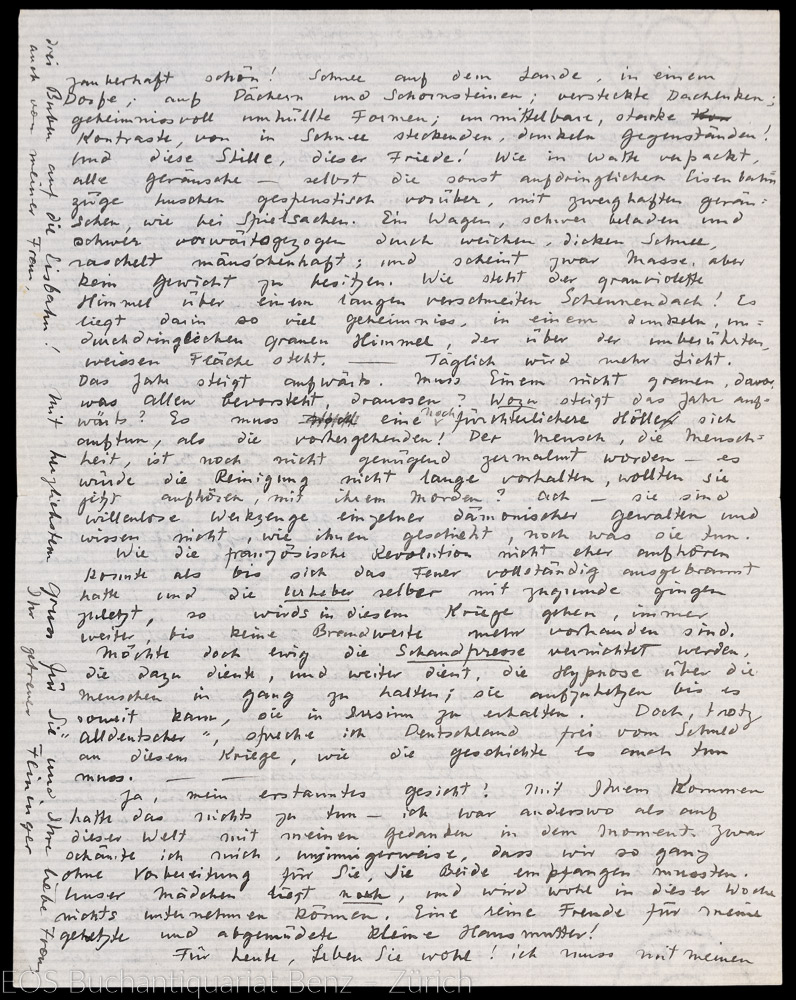 zauberhaft schön! Schnee auf dem Lande, in einem
Dorfe; auf Dächern und Schornsteinen; versteckte Dachluken;
geheimnissvoll umhüllte Formen; unmittelbare, starke
Kontraste, von in Schnee steckenden, dunkeln Gegenständen!
und diese Stille, dieser Friede! Wie in Watte verpackt,
alle Geräusche — selbst die sonst aufdringlichen Eisenbahn
züge huschen gespenstisch vorüber, mit zwerghaften Geräu=
schen, wie bei Spielsachen. Ein Wagen, schwer beladen und
schwer vorwärtsgezogen durch weichen, dicken Schnee,
raschelt mäuschenhaft; und scheint zwar Masse, aber
kein Gewicht zu besitzen. Wie steht der grauviolette
Himmel über einem langen verschneiten Scheunendach! Es
liegt darin so viel Geheimniss, in einem dunkeln, un=
durchdringlichen grauen Himmel, der über der unberührten,
weissen Fläche steht. — Täglich wird mehr Licht.
Das Jahr steigt aufwärts. Muss Einem nicht grauen, davor,
was allen bevorsteht, draussen? Wozu steigt das Jahr auf=
wärts? Es muss eine noch fürchterlichere Hölle sich
auftun, als die vorhergehenden! Der Mensch, die Mensch=
heit, ist noch nicht genügend zermalmt worden — es
würde die Reinigung nicht lange vorhalten, wollten sie
jetzt aufhören, mit ihrem Morden? Ach — sie sind
willenlose Werkzeuge einzelner dämonischer Gewalten und
wissen nicht, wie ihnen geschieht, noch was sie tun.
Wie die französische Revolution nicht eher aufhören
konnte als bis sich das Feuer vollständig ausgebrannt
hatte und die Urheber selber mit zugrunde gingen
zuletzt, so wirds in diesem Kriege gehen, immer
weiter, bis keine Brandweite mehr vorhanden sind.
Möchte doch ewig die Schandpresse vernichtet werden,
die dazu diente, und weiter dient, die Hypnose über die
Menschen in Gang zu halten; sie aufzuhetzen bis es
soweit kam, sie in Irrsinn zu erhalten. Doch, trotz
"Alldeutscher", spreche ich Deutschland frei vom Schuld
an diesem Kriege, wie die Geschichte es auch tun
muss. — —
Ja, mein erstauntes Gesicht! Mit Ihrem Kommen
hatte das nichts zu tun — ich war anderswo als auf
dieser Welt mit meinen Gedanken in dem Moment. Zwar
schämte ich mich, unsinnigerweise, dass wir so ganz
ohne Vorbereitung für Sie, Sie Beide empfangen mussten.
Unser Mädchen liegt noch, und wird wohl in dieser Woche
nichts unternehmen können. Eine reine Freude für meine
gehetzte und abgemüdete kleine Hausmutter!
Für heute, Leben Sie wohl! ich muss mit meinen
drei Buben auf die Eisbahn! Mit herzlichstem Gruss für Sie und Ihre liebe Frau,
auch von meiner Frau, Ihr getreuer Feininger
EOS Buchantiquariat Benz - Zürich